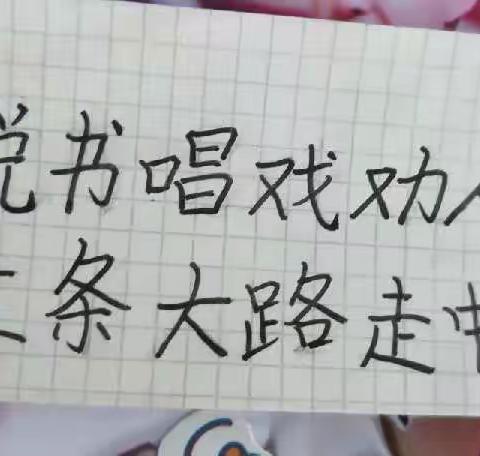 说书唱戏劝人
三条大路走中